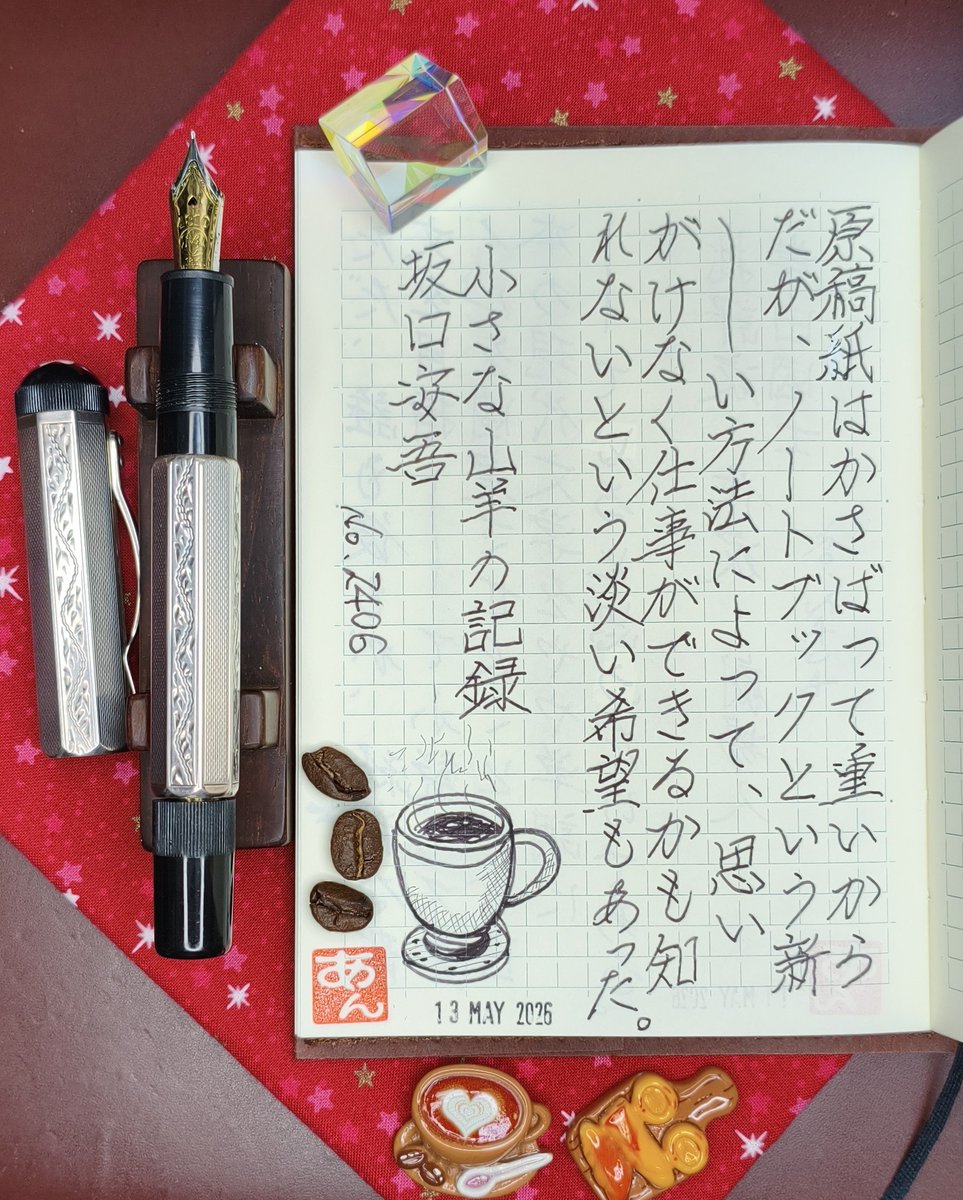 原稿紙はかさばって重いから
だが、ノートブックという新
しい方法によって、思い
がけなく仕事ができるかも知
れないという淡い希望もあった。
小さな山羊の記録
坂口安吾
No.2406
あん
13 MAY 2026